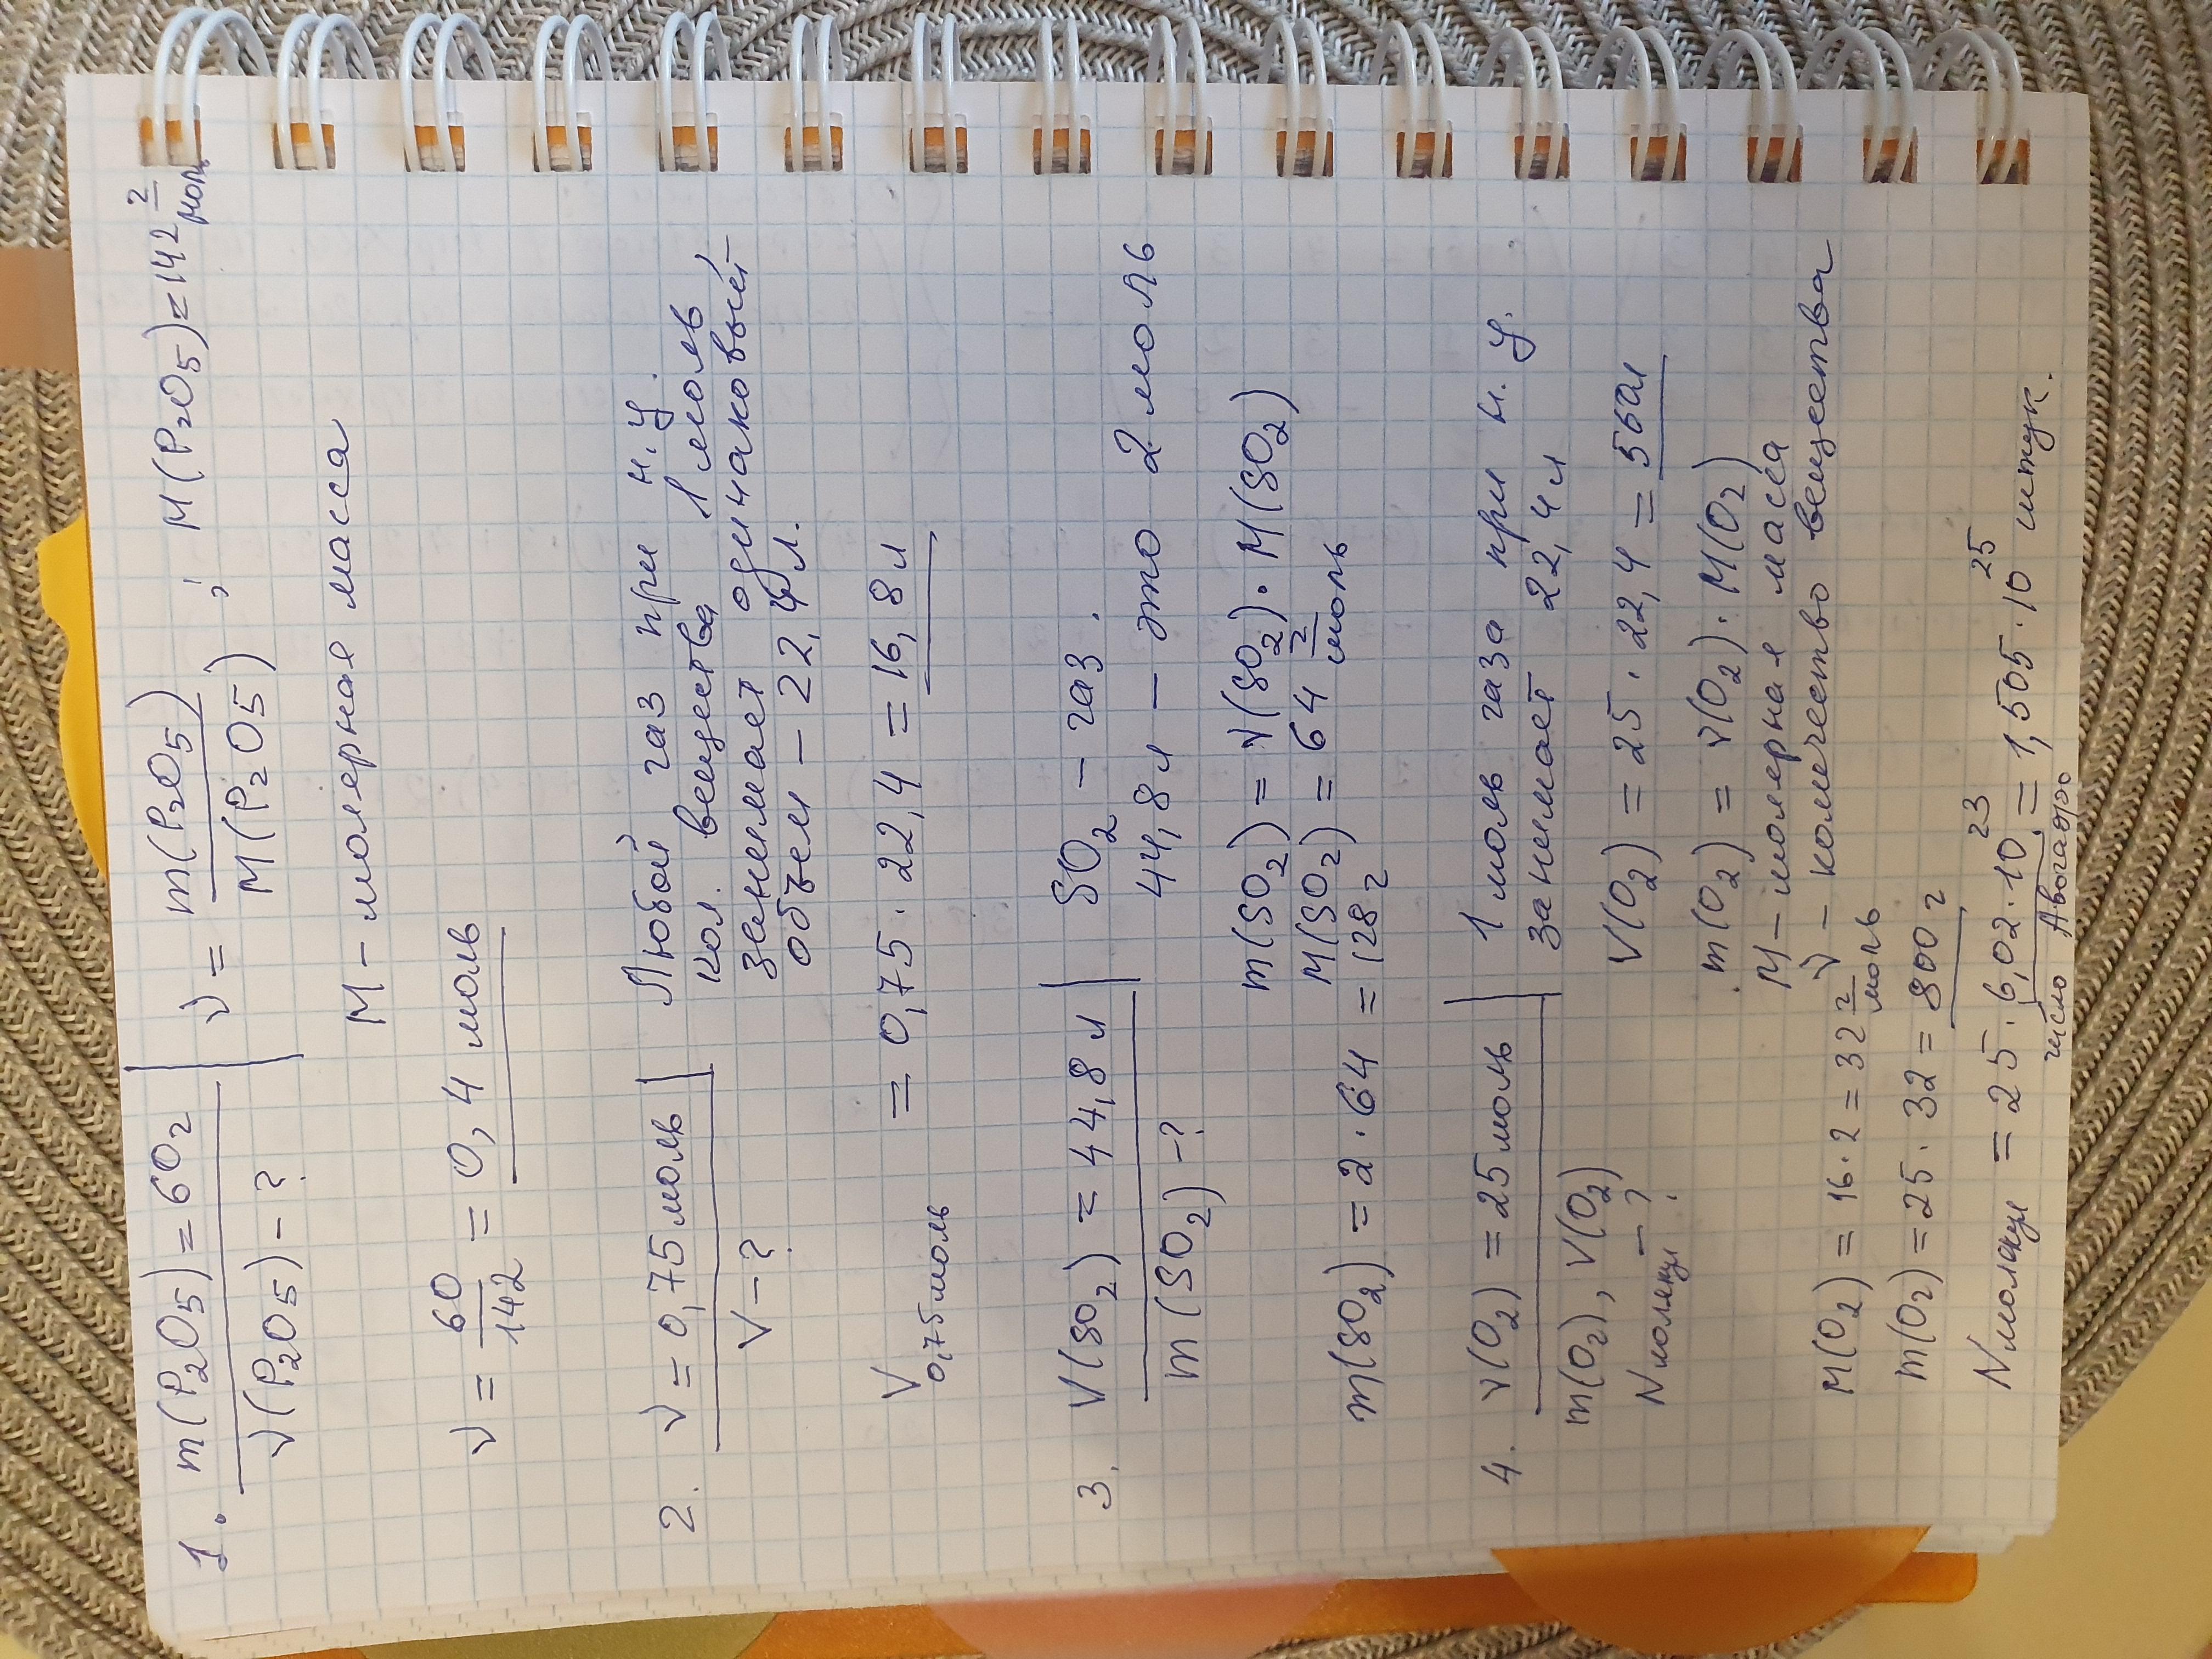 1. m(P₂O₅)=60г | ν = m(P₂O₅)/M(P₂O₅) ; M(P₂O₅)=142 г/моль
ν(P₂O₅) – ?
M – молярная масса
ν = 60/142 = 0,4 моль
2. ν = 0,75 моль | Любой газ при н.у.
V – ? кол. вещества 1 моль,
занимает одинаковый
объем – 22,4 л.
V 0,75 моль = 0,75 · 22,4 = 16,8 л
3. V(SO₂) = 44,8 л | SO₂ – газ.
m(SO₂) – ? 44,8 л – это 2 моль
m(SO₂) = ν(SO₂) · M(SO₂)
M(SO₂) = 64 г/моль
m(SO₂) = 2 · 64 = 128 г
4. ν(O₂) = 25 моль | 1 моль газа при н. у.
m(O₂), V(O₂) занимает 22,4 л
N молекул – ? V(O₂) = 25 · 22,4 = 560л
m(O₂) = ν(O₂) · M(O₂)
M – молярная масса
ν – количество вещества
M(O₂) = 16 · 2 = 32 г/моль
m(O₂) = 25 · 32 = 800 г
N молекул = 25 · 6,02 · 10²³ = 1,505 · 10²⁵ штук.
число Авогадро